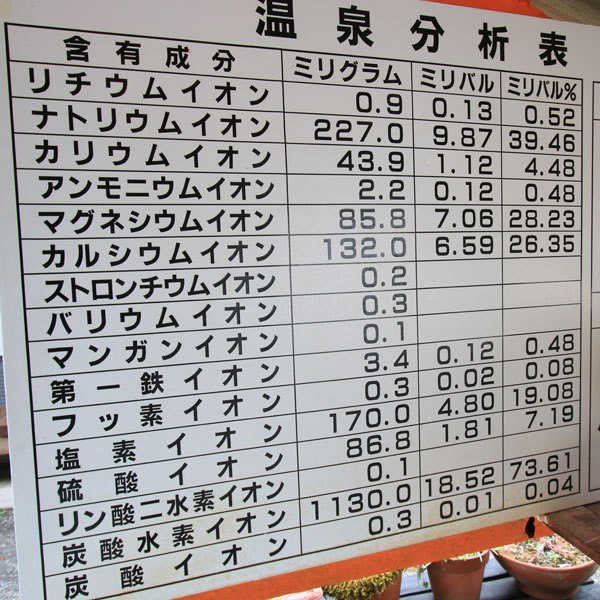 温泉分析表
含有成分 ミリグラム ミリバル ミリバル%
リチウムイオン 0.9 0.13 0.52
ナトリウムイオン 227.0 9.87 39.46
カリウムイオン 43.9 1.12 4.48
アンモニウムイオン 2.2 0.12 0.48
マグネシウムイオン 85.8 7.06 28.23
カルシウムイオン 132.0 6.59 26.35
ストロンチウムイオン 0.2
バリウムイオン 0.3
マンガンイオン 0.1
第一鉄イオン 3.4 0.12 0.48
フッ素イオン 0.3 0.02 0.08
塩素イオン 170.0 4.80 19.08
硫酸イオン 86.8 1.81 7.19
リン酸二水素イオン 0.1
炭酸水素イオン 1130.0 18.52 73.61
炭酸イオン 0.3 0.01 0.04